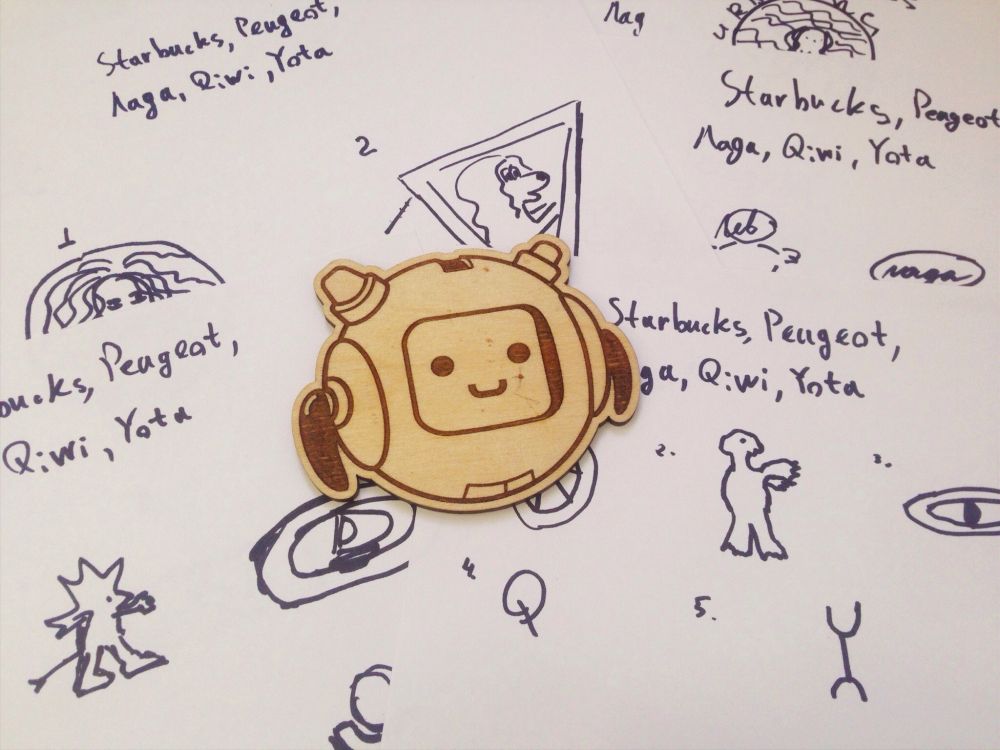 Starbucks, Peugeot,
Naga, Qiwi, Yota
Nag
Starbucks, Peugeot
Naga, Qiwi, Yota
2
1
3
naga
Starbucks, Peugeot,
ga, Qiwi, Yota
bucks, Peugeot,
Qiwi, Yota
2.
3.
4.
Q
5.